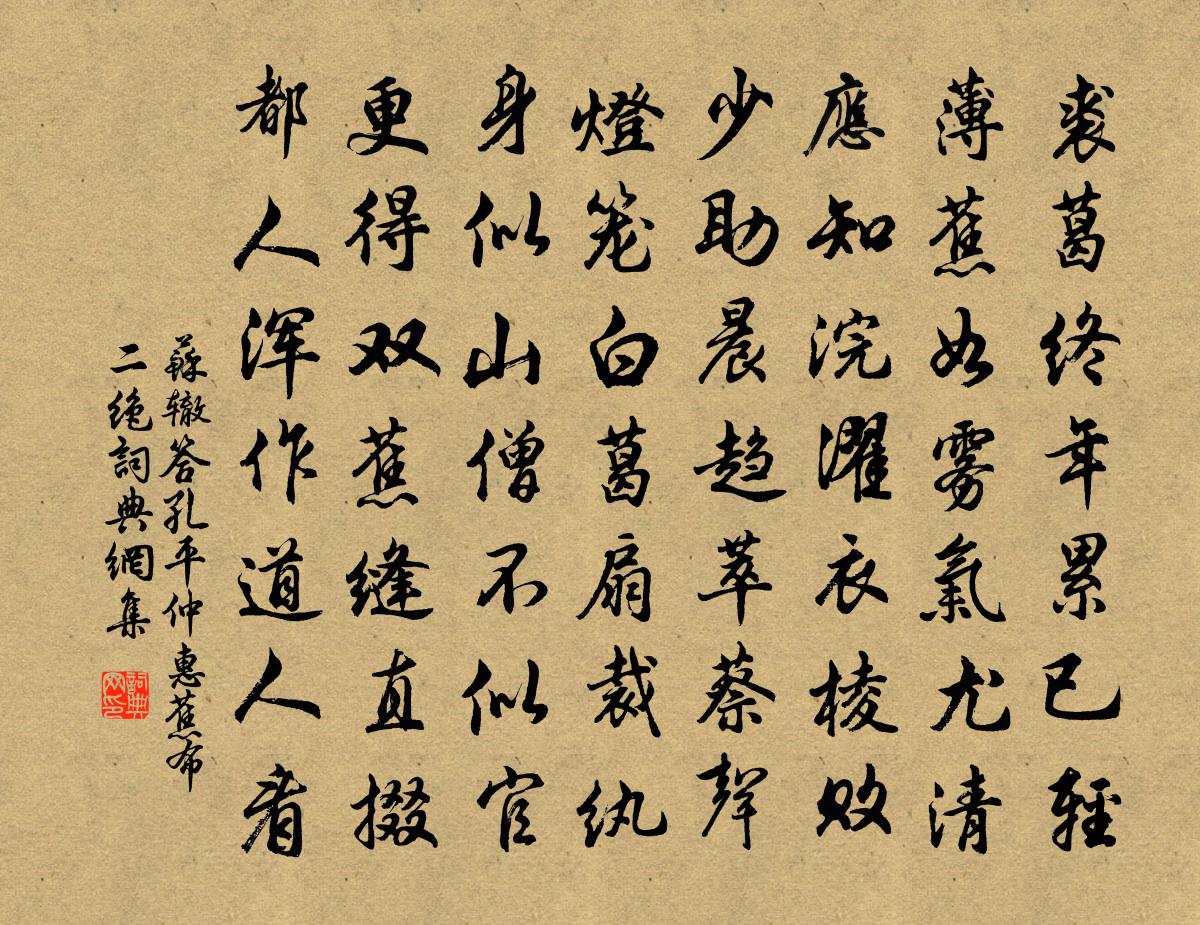 裘葛终年累已輕
薄蕉如雾氣尤清
應知浣濯衣棱败
少助晨趋萃蔡聲
燈笼白葛扇裁纨
身似山僧不似官
更得双蕉缝直掇
都人浑作道人看
蘇辙答孔平仲惠蕉布
二绝詞典網集
詞典网印